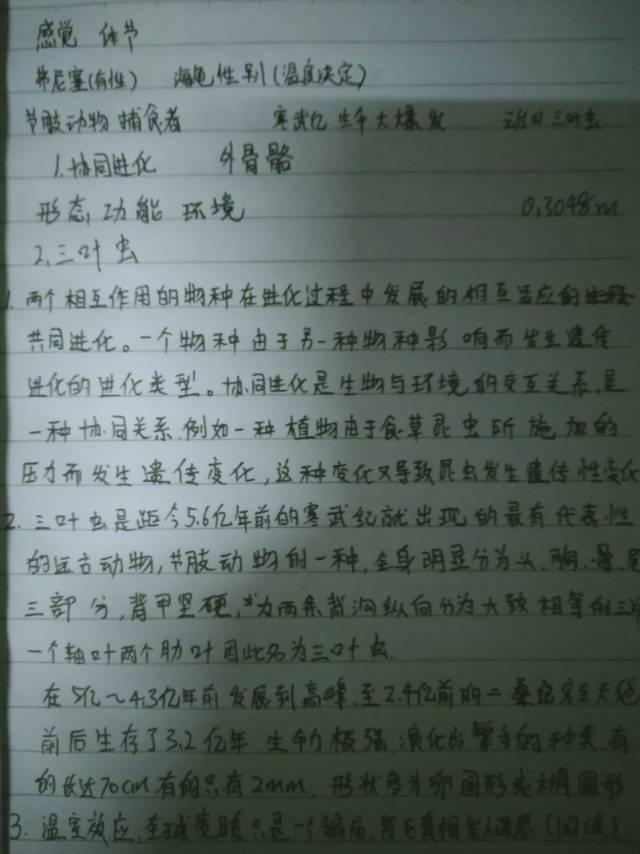 感觉 体节
弗尼塞(有性) 海龟性别(温度决定)
节肢动物 捕食者 寒武亿 生命大爆发 三叶虫
1.协同进化 外骨骼
形态,功能 环境 0.3048m
2.三叶虫
1.两个相互作用的物种在进化过程中发展的相互适应的
共同进化。一个物种由于另一种物种影响而发生遗传
进化的进化类型。协同进化是生物与环境的交互关系,是
一种协同关系.例如一种植物由于食草昆虫所施加的
压力而发生遗传变化,这种变化又导致昆虫发生遗传性变化
2.三叶虫是距今5.6亿年前的寒武纪就出现的最有代表性
的远古动物,节肢动物的一种,全身明显分为头.胸.
三部分,背甲坚硬,为两条背沟纵向分为大致相等的三
一个轴叶两个肋叶因此名为三叶虫.
在5亿～4.3亿年前发展到高峰,至2.4亿前的二叠纪完全灭绝
前后生存了3.2亿年 生命力极强 演化出繁多的种类,有
的长达70cm有的只有2mm.形状多为卵圆形或椭圆形
3.温室效应,全球变暖只是一个骗局,背后真相发人深思